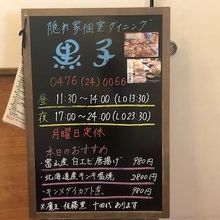 隠れ家個室ダイニング
黒子
0476(24)0066
昼 11:30~14:00 (LO13:30)
夜 17:00~24:00 (LO23:30)
月曜日定休
本日のおすすめ
・富山産 白エビ唐揚げ 980円
・北海道産キンキ塩焼 2800円
・キンメダイカブト煮 980円
※魔王 佐藤黒 十四代 あります